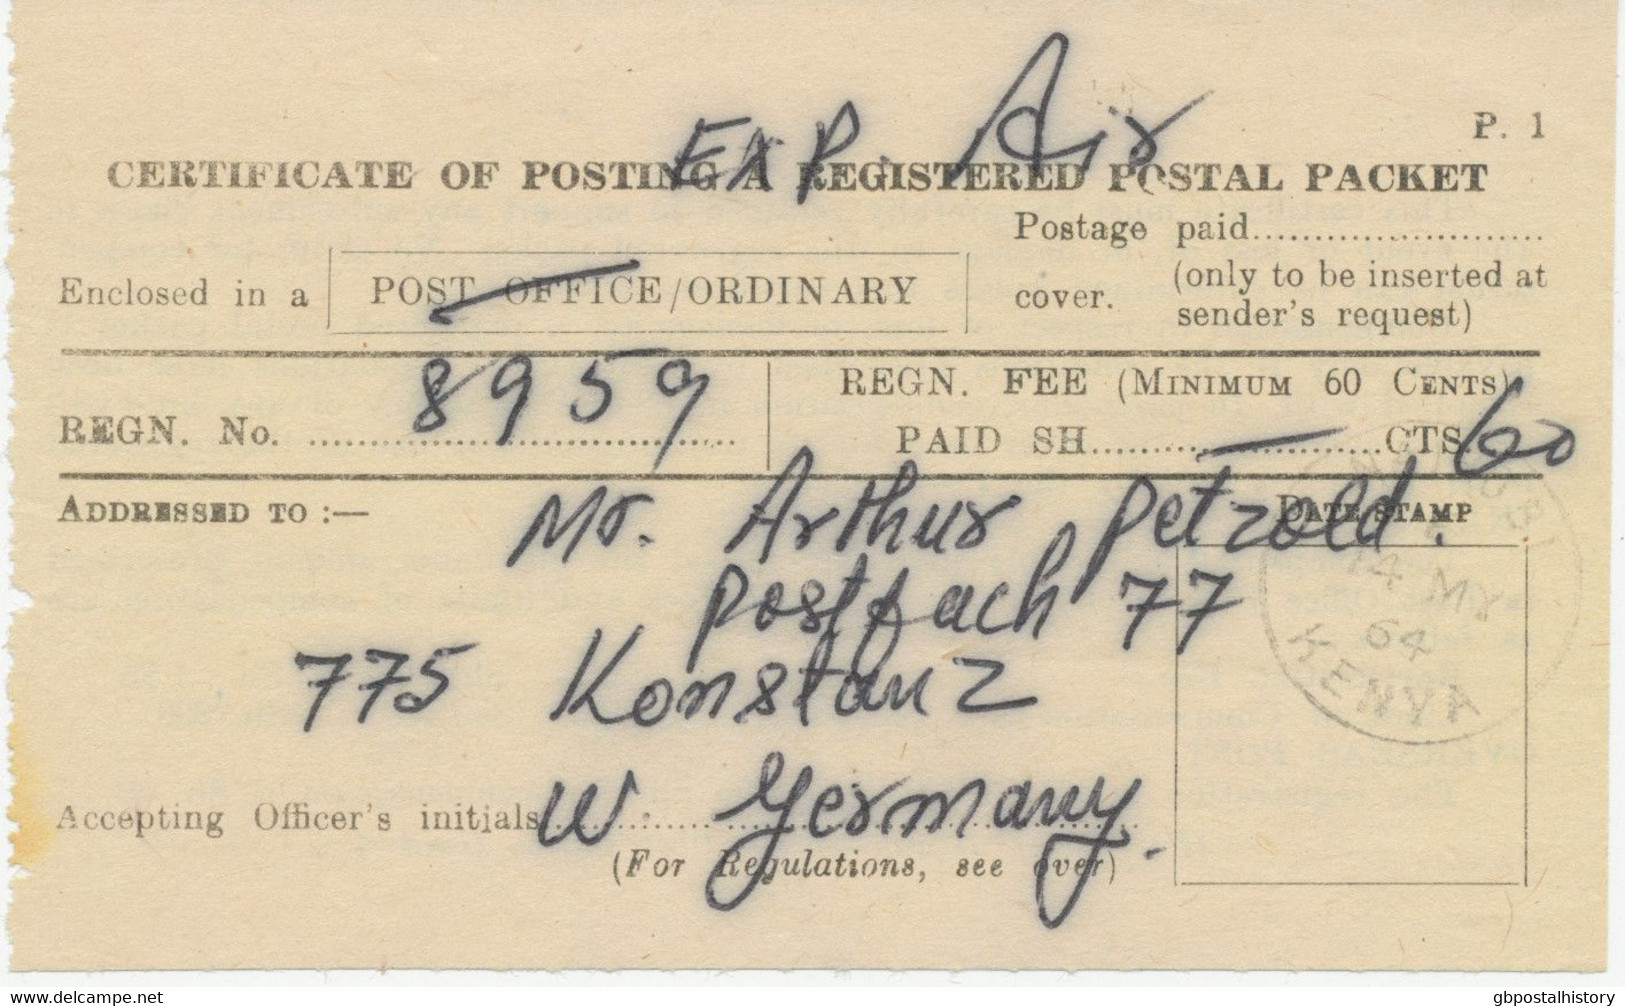 EXP. Air
P. 1
CERTIFICATE OF POSTING A REGISTERED POSTAL PACKET
Enclosed in a POST OFFICE/ORDINARY cover.
Postage paid
(only to be inserted at
sender's request)
REGN. No. 8959
REGN. FEE (MINIMUM 60 CENTS)
PAID SH. — CTS. 60
ADDRESSED TO :—
Mr. Arthur Petzold.
Postfach 77
775 Konstanz
W. Germany.
DATE STAMP
14 MY
64
KENYA
Accepting Officer's initials
(For Regulations, see over)
delcampe.net
gbpostalhistory